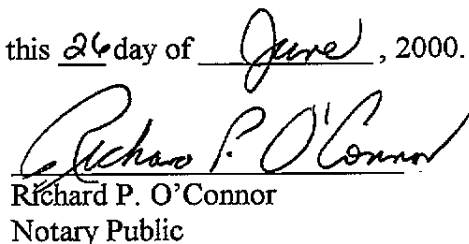 this 26 day of June, 2000.
Richard P. O'Connor
Richard P. O'Connor
Notary Public